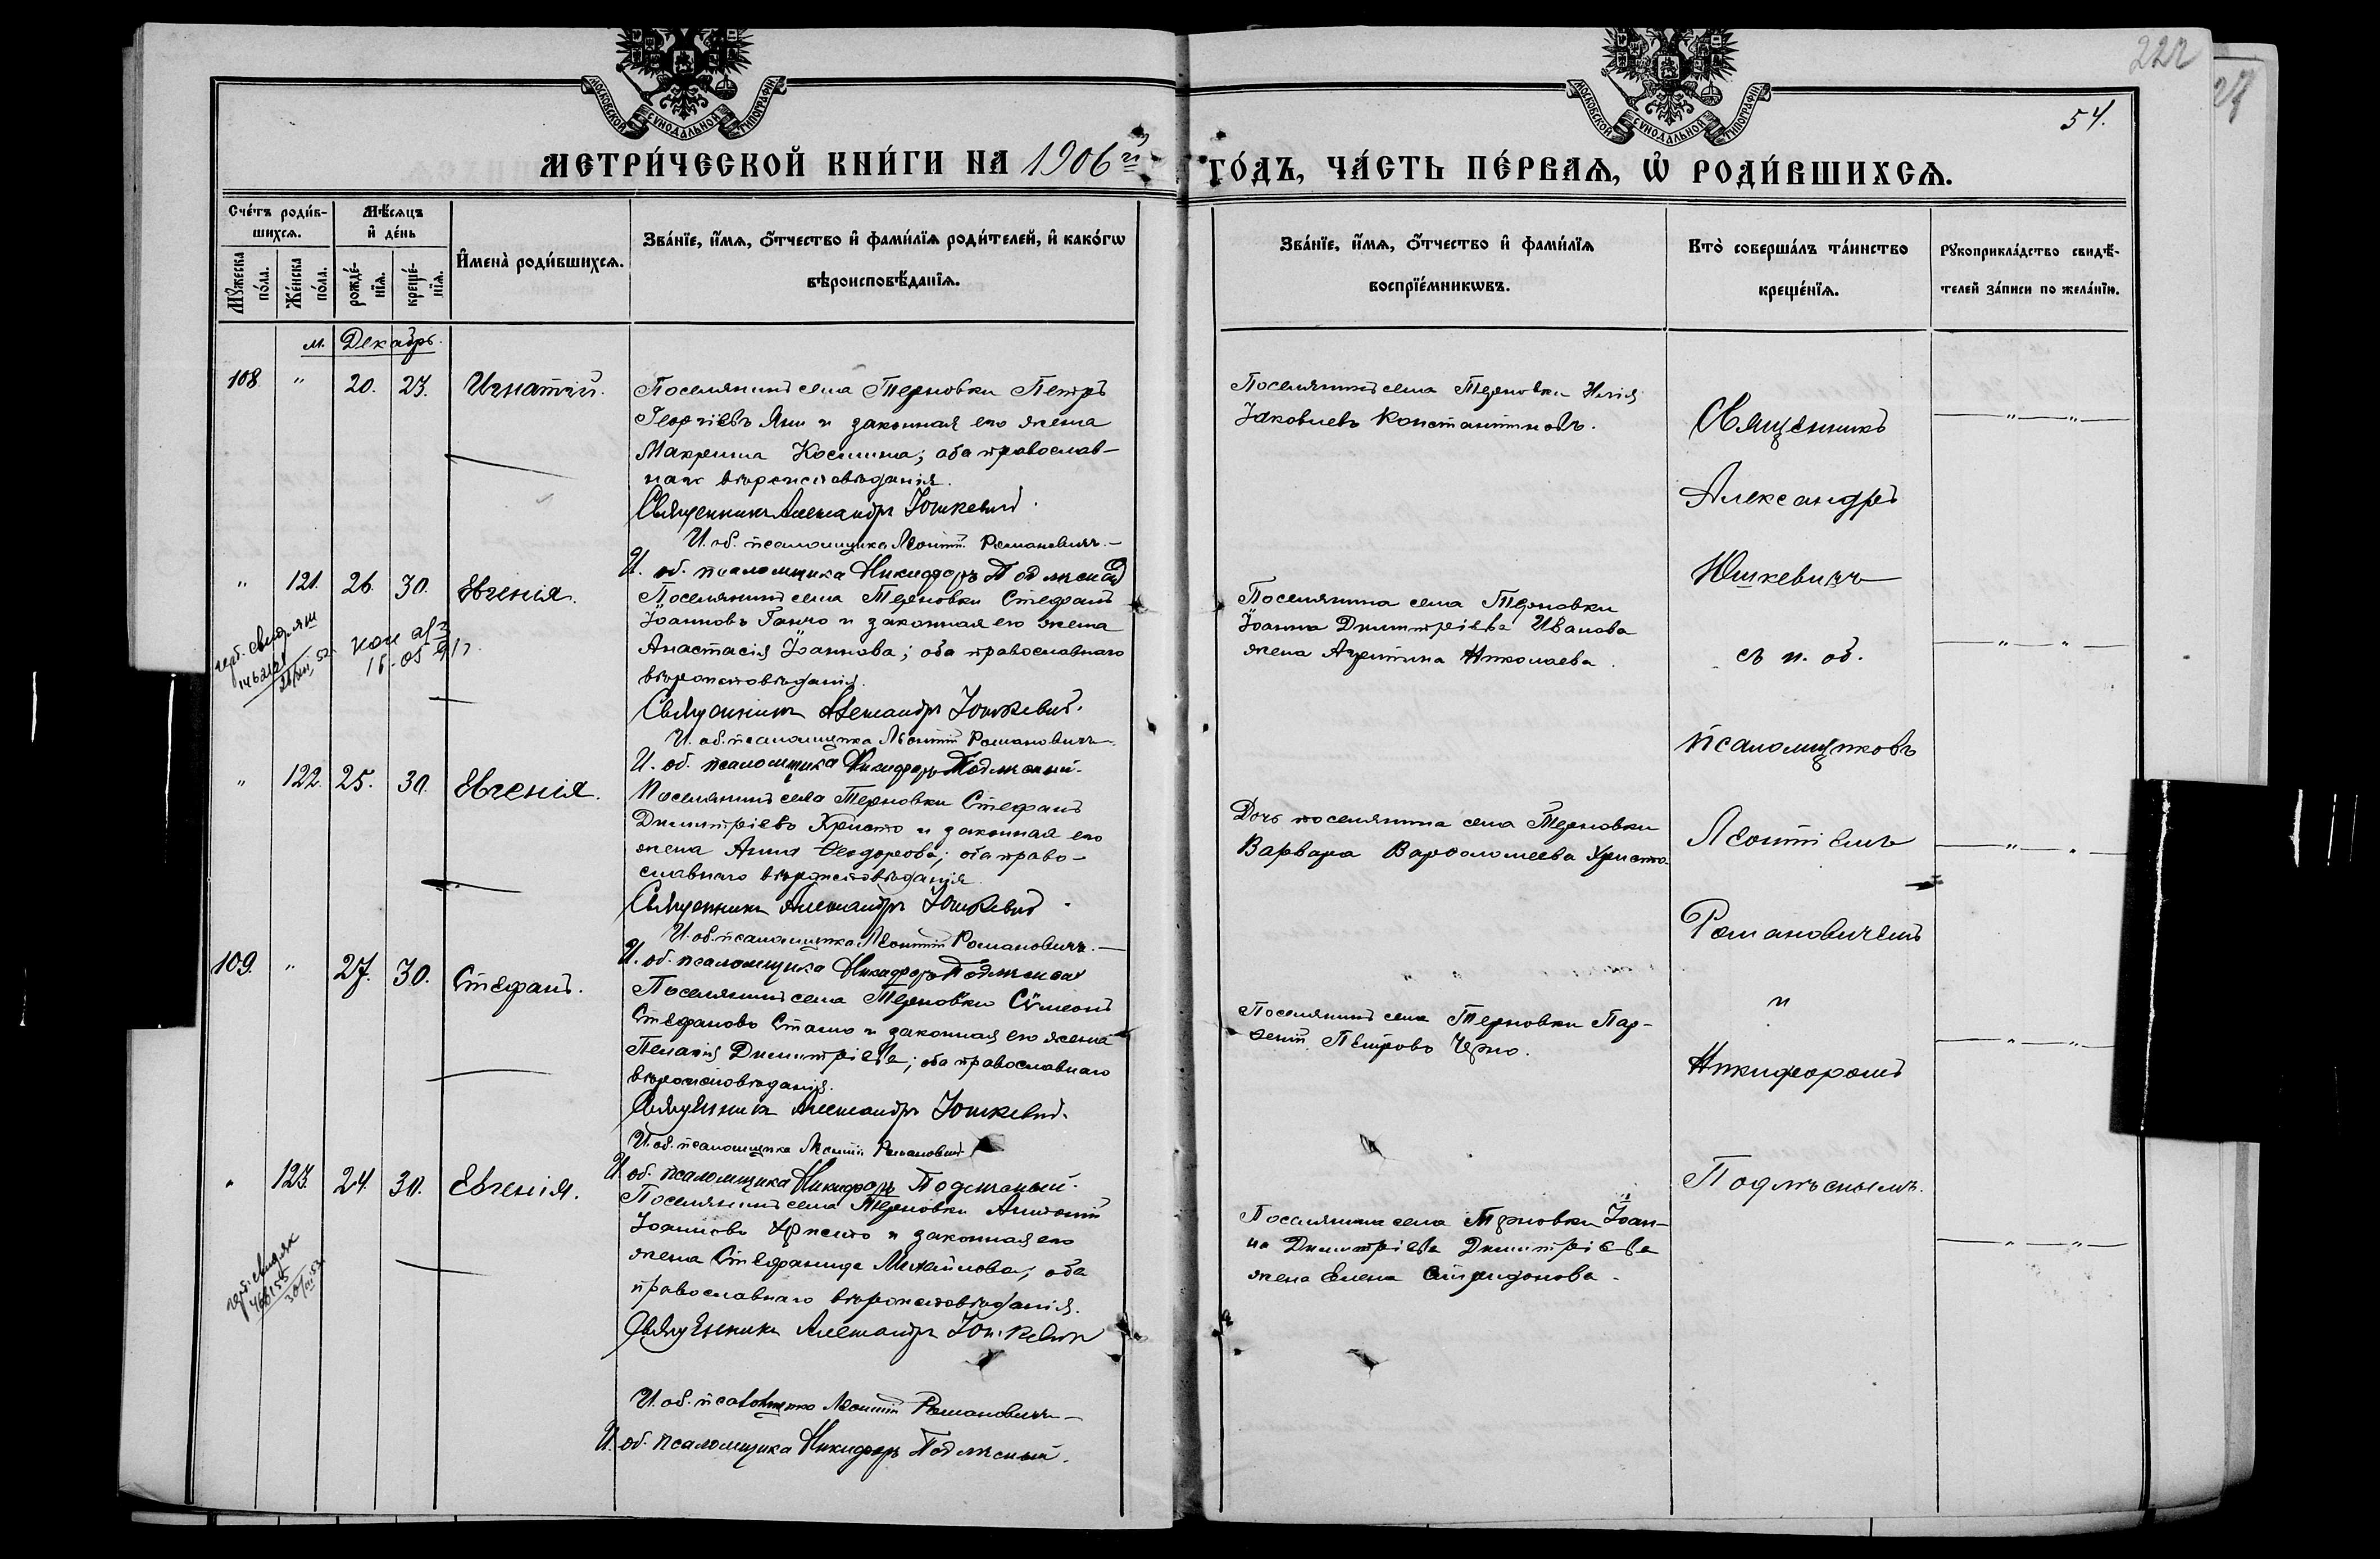 222
54.
МОСКОВСКОЙ СѴНОДАЛЬНОЙ ТИПОГРАФІИ
МОСКОВСКОЙ СѴНОДАЛЬНОЙ ТИПОГРАФІИ
МЕТРИ́ЧЕСКОЙ КНИ́ГИ НА 1906 й ГО́ДЪ, ЧА́СТЬ ПЕ́РВАѦ, Ѡ РОДИ́ВШИХСѦ.
Сче́тъ роди́в-
шихсѧ.
Мꙋжеска
по́ла.
Же́нска
по́ла.
Мѣ́сѧцъ
и̂ де́нь
рожде́-
нїѧ.
креще́-
нїѧ.
И̂мена̀ роди́вшихсѧ.
Зва́нїе, и̂́мѧ, ѻ̂́тчество и̂ фами́лїѧ роди́телей, и̂ како́гѡ
вѣроисповѣ́данїѧ.
Зва́нїе, и̂́мѧ, ѻ̂́тчество и̂ фами́лїѧ
воспрїе́мникѡвъ.
Кто̀ соверша́лъ та́инство
креще́нїѧ.
Рꙋкоприкла́дство свидѣ́-
телей за́писи по жела́нїю.
м. Декабрь.
108 " 20. 23. Игнатій.
Поселянинъ села Терновки Петръ
Георгіевъ Яни и законная его жена
Макрина Космина; оба православ-
наго вѣроисповѣданія.
Священникъ Александръ Юшкевичъ.
И. об. псаломщика Леонтій Романовичъ.
И. об. псаломщика Никифоръ Подлѣсный
Поселянинъ села Терновки Илія
Іаковлевъ Константиновъ.
" 121. 26. 30. Евгенія.
Поселянинъ села Терновки Стефанъ
Іоанновъ Ганчо и законная его жена
Анастасія Іоаннова; оба православнаго
вѣроисповѣданія.
Священникъ Александръ Юшкевичъ.
И. об. псаломщика Леонтій Романовичъ.
И. об. псаломщика Никифоръ Подлѣсный.
Поселянина села Терновки
Іоанна Димитріева Иванова
жена Николаева.
" 122. 25. 30. Евгенія.
Поселянинъ села Терновки Стефанъ
Димитріевъ Христо и законная его
жена Анна Ѳеодорова; оба право-
славнаго вѣроисповѣданія.
Священникъ Александръ Юшкевичъ.
И. об. псаломщика Леонтій Романовичъ.
И. об. псаломщика Никифоръ Подлѣсный
Дочь поселянина села Терновки
Варвара Варѳоломеева Христо.
109. " 27. 30. Стефанъ.
Поселянинъ села Терновки Сѵмеонъ
Стефановъ и законная его жена
Пелагія Димитріева; оба православнаго
вѣроисповѣданія.
Священникъ Александръ Юшкевичъ.
И. об. псаломщика Леонтій Романовичъ
И. об. псаломщика Никифоръ Подлѣсный.
Поселянинъ села Терновки Пар-
ѳеній Петровъ Черно.
" 123. 24. 30. Евгенія.
Поселянинъ села Терновки Антоній
Іоанновъ Христо и законная его
жена Стефанида Михайлова; оба
православнаго вѣроисповѣданія.
Священникъ Александръ Юшкевичъ
И. об. псаломщика Леонтій Романовичъ
И. об. псаломщика Никифоръ Подлѣсный.
Поселянина села Терновки Іоан-
на Димитріева Димитріева
жена Елена Спиридонова.
Священникъ
Александръ
Юшкевичъ
съ и. об.
псаломщиковъ
Леонтіемъ
Романовичемъ
и
Никифоромъ
Подлѣснымъ.